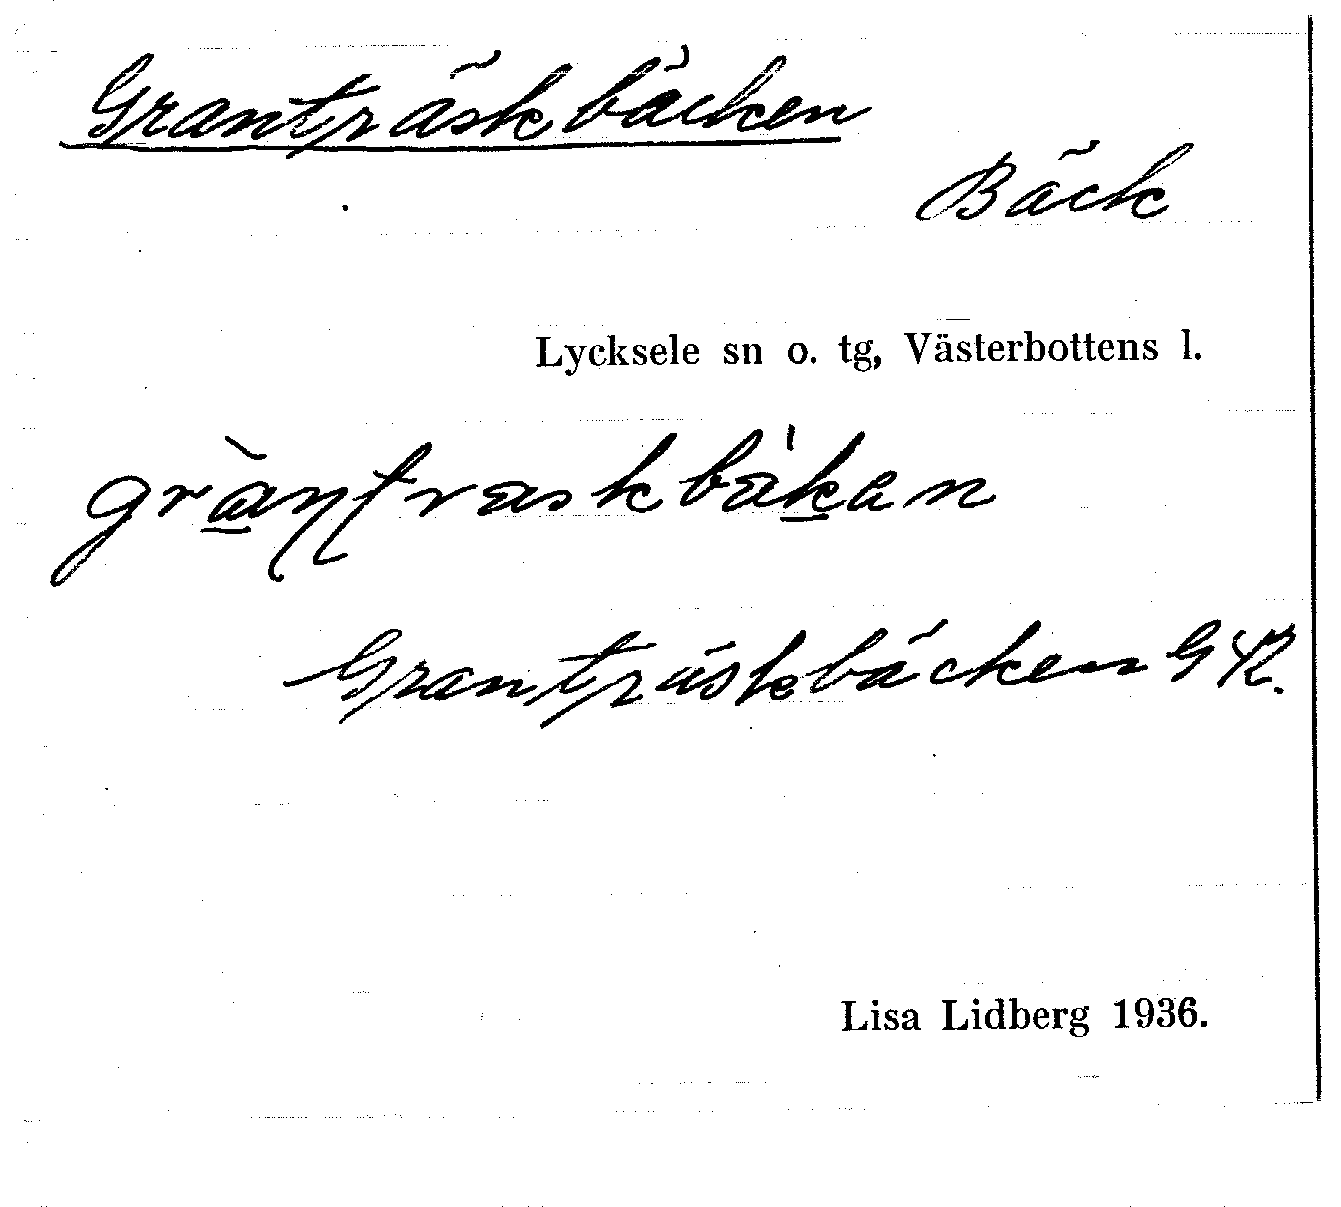 Granträskbäcken
Bäck
Lycksele sn o. tg, Västerbottens l.
Granträskbäcken GK.
Lisa Lidberg 1936.